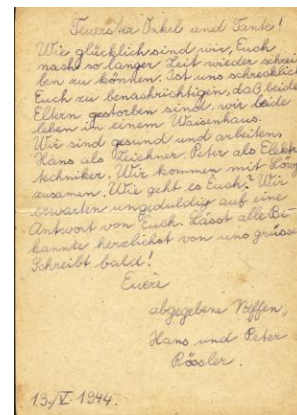 Teuerster Onkel und Tante!
Wie glücklich sind wir, Euch
nach so langer Zeit wieder schrei
ben zu können. Ist uns schrecklich
Euch zu benachrichtigen, daß beide
Eltern gestorben sind, wir beide
leben in einem Waisenhaus.
Wir sind gesund und arbeiten,
Hans als Zeichner, Peter als Elektro
techniker. Wir kommen mit
zusamen. Wie geht es Euch? Wir
erwarten ungeduldig auf eine
Antwort von Euch. Lässt alle Be
kannte herzlichst von uns grüsse
Schreibt bald!
Euere
abgegebene Neffen,
Hans und Peter
Rössler.
13./V. 1944.